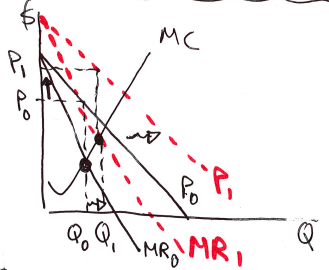 $
MC
P₁
P₀
P₀
P₁
Q₀ Q₁ MR₀ MR₁ Q